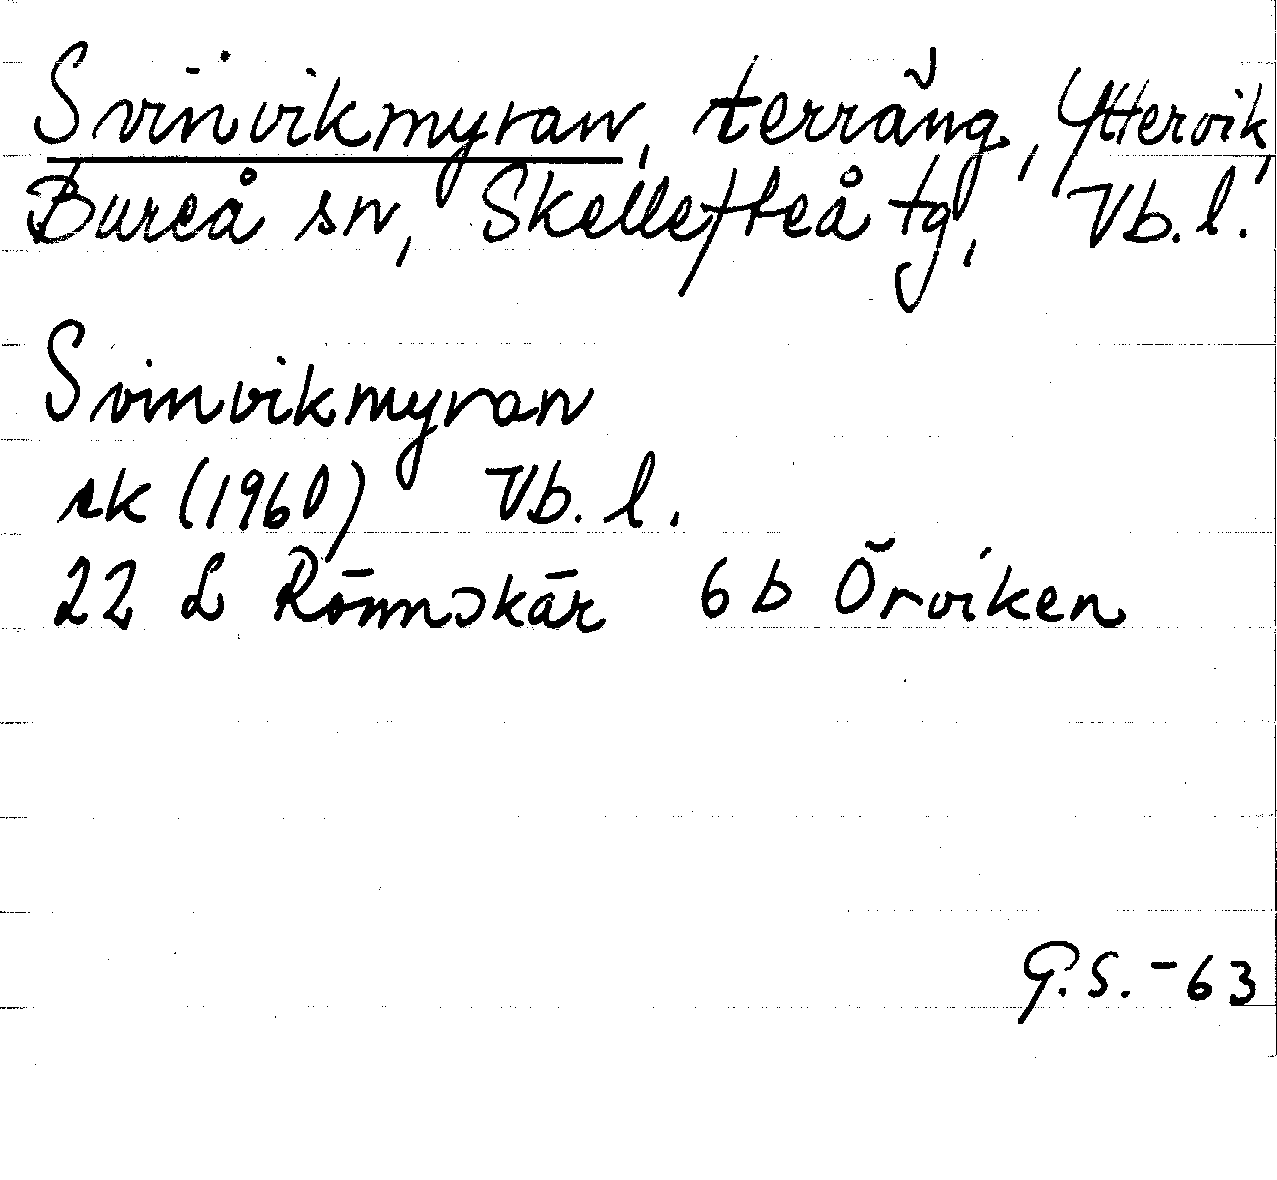 Svinvikmyran, terräng, Yttervik,
Bureå sn, Skellefteå tg, Vb. l.
Svinvikmyran
rk (1960) Vb. l.
22 L Rönnskär 6 b Örviken
G.S. - 63